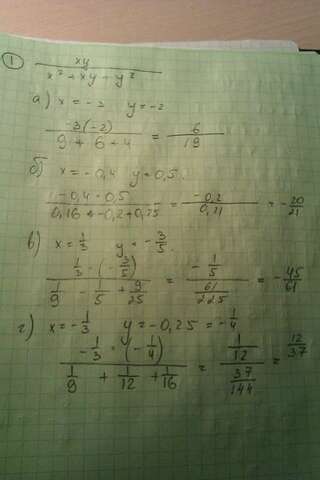 ① xy / (x² + xy + y²)
а) x = -3 y = -2
-3(-2) / (9 + 6 + 4) = 6 / 19
б) x = -0,4 y = 0,5.
-0,4 · 0,5 / (0,16 + -0,2 + 0,25) = -0,2 / 0,21 = -20/21
в) x = 1/3 y = -3/5.
1/3 · (-3/5) / (1/9 - 1/5 + 9/25) = -1/5 / (61/225) = -45/61
г) x = -1/3 y = -0,25 = -1/4
-1/3 · (-1/4) / (1/9 + 1/12 + 1/16) = 1/12 / (37/144) = 12/37